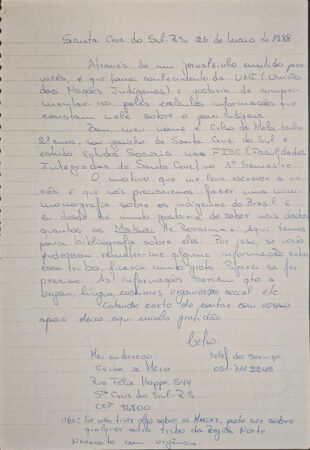 Santa Cruz do Sul-RS, 26 de Maio de 1988.
Através de um jornalzinho emitido por
vocês, é que tomei conhecimento da UNI (União
das Nações Indígenas) e gostaria de cumpri-
mentar-vos pelas excelentes informações que
constam nele sobre o povo indígena.
Bom, meu nome é Celso de Melo tenho
2 anos, sou gaúcho de Santa Cruz do Sul e
estudo Estudos Sociais nas FISC (Faculdades
Integradas de Santa Cruz) no 3º Semestre.
O motivo que me leva escrever a vo-
cês é que nós precisaremos fazer uma mini-
monografia sobre os indígenas do Brasil e
eu desde há muito gostaria de saber mais dados
quanto os Makuxi de Roraima. Aqui temos
pouca bibliografia sobre eles. Por isso, se vocês
pudessem remeter-me alguma informação sobre
essa tribo, ficaria muito grato. Pagarei se for
preciso. As informações seriam qto a
origem, língua, costumes, organização social etc.
Estando certo de contar com vosso
apoio deixo aqui minha gratidão.
Celso.
Meu endereço: Telef do serviço:
Celso de Melo 051-711.2245
Rua Félix Hoppe 544
Sta Cruz do Sul-RS
CEP 96800
Obs: Se não tiver algo sobre os Makuxi, pode ser sobre
qualquer outra tribo da Região Norte
Necessito com urgência.